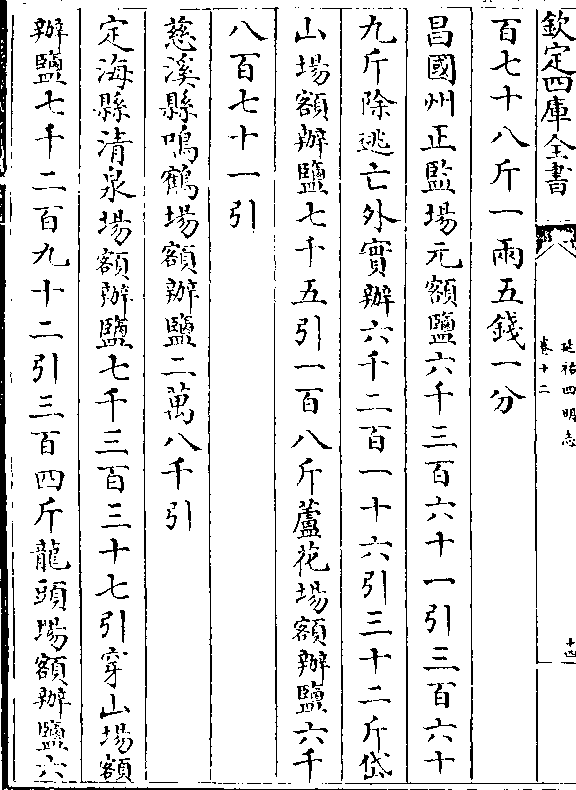 欽定四庫全書
延祐四明志
卷十二
十四
百七十八斤一兩五錢一分
昌國州正監場元額鹽六千三百六十一引三百六十
九斤除逃亡外實辦六千二百一十六引三十二斤岱
山場額辦鹽七千五引一百八斤蘆花場額辦鹽六千
八百七十一引
慈溪縣鳴鶴場額辦鹽二萬八千引
定海縣清泉場額辦鹽七千三百三十七引穿山場額
辦鹽七千二百九十二引三百四斤龍頭場額辦鹽六